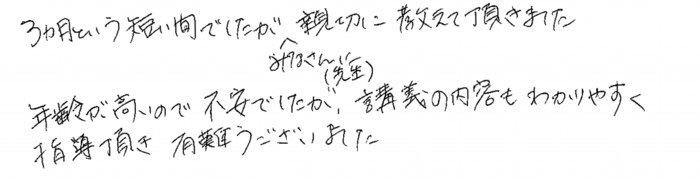 3ヵ月という短い間でしたが親切に教えて頂きました
みなさんに
(先生)
年齢が高いので不安でしたが、講義の内容もわかりやすく
指導頂き有難うございました